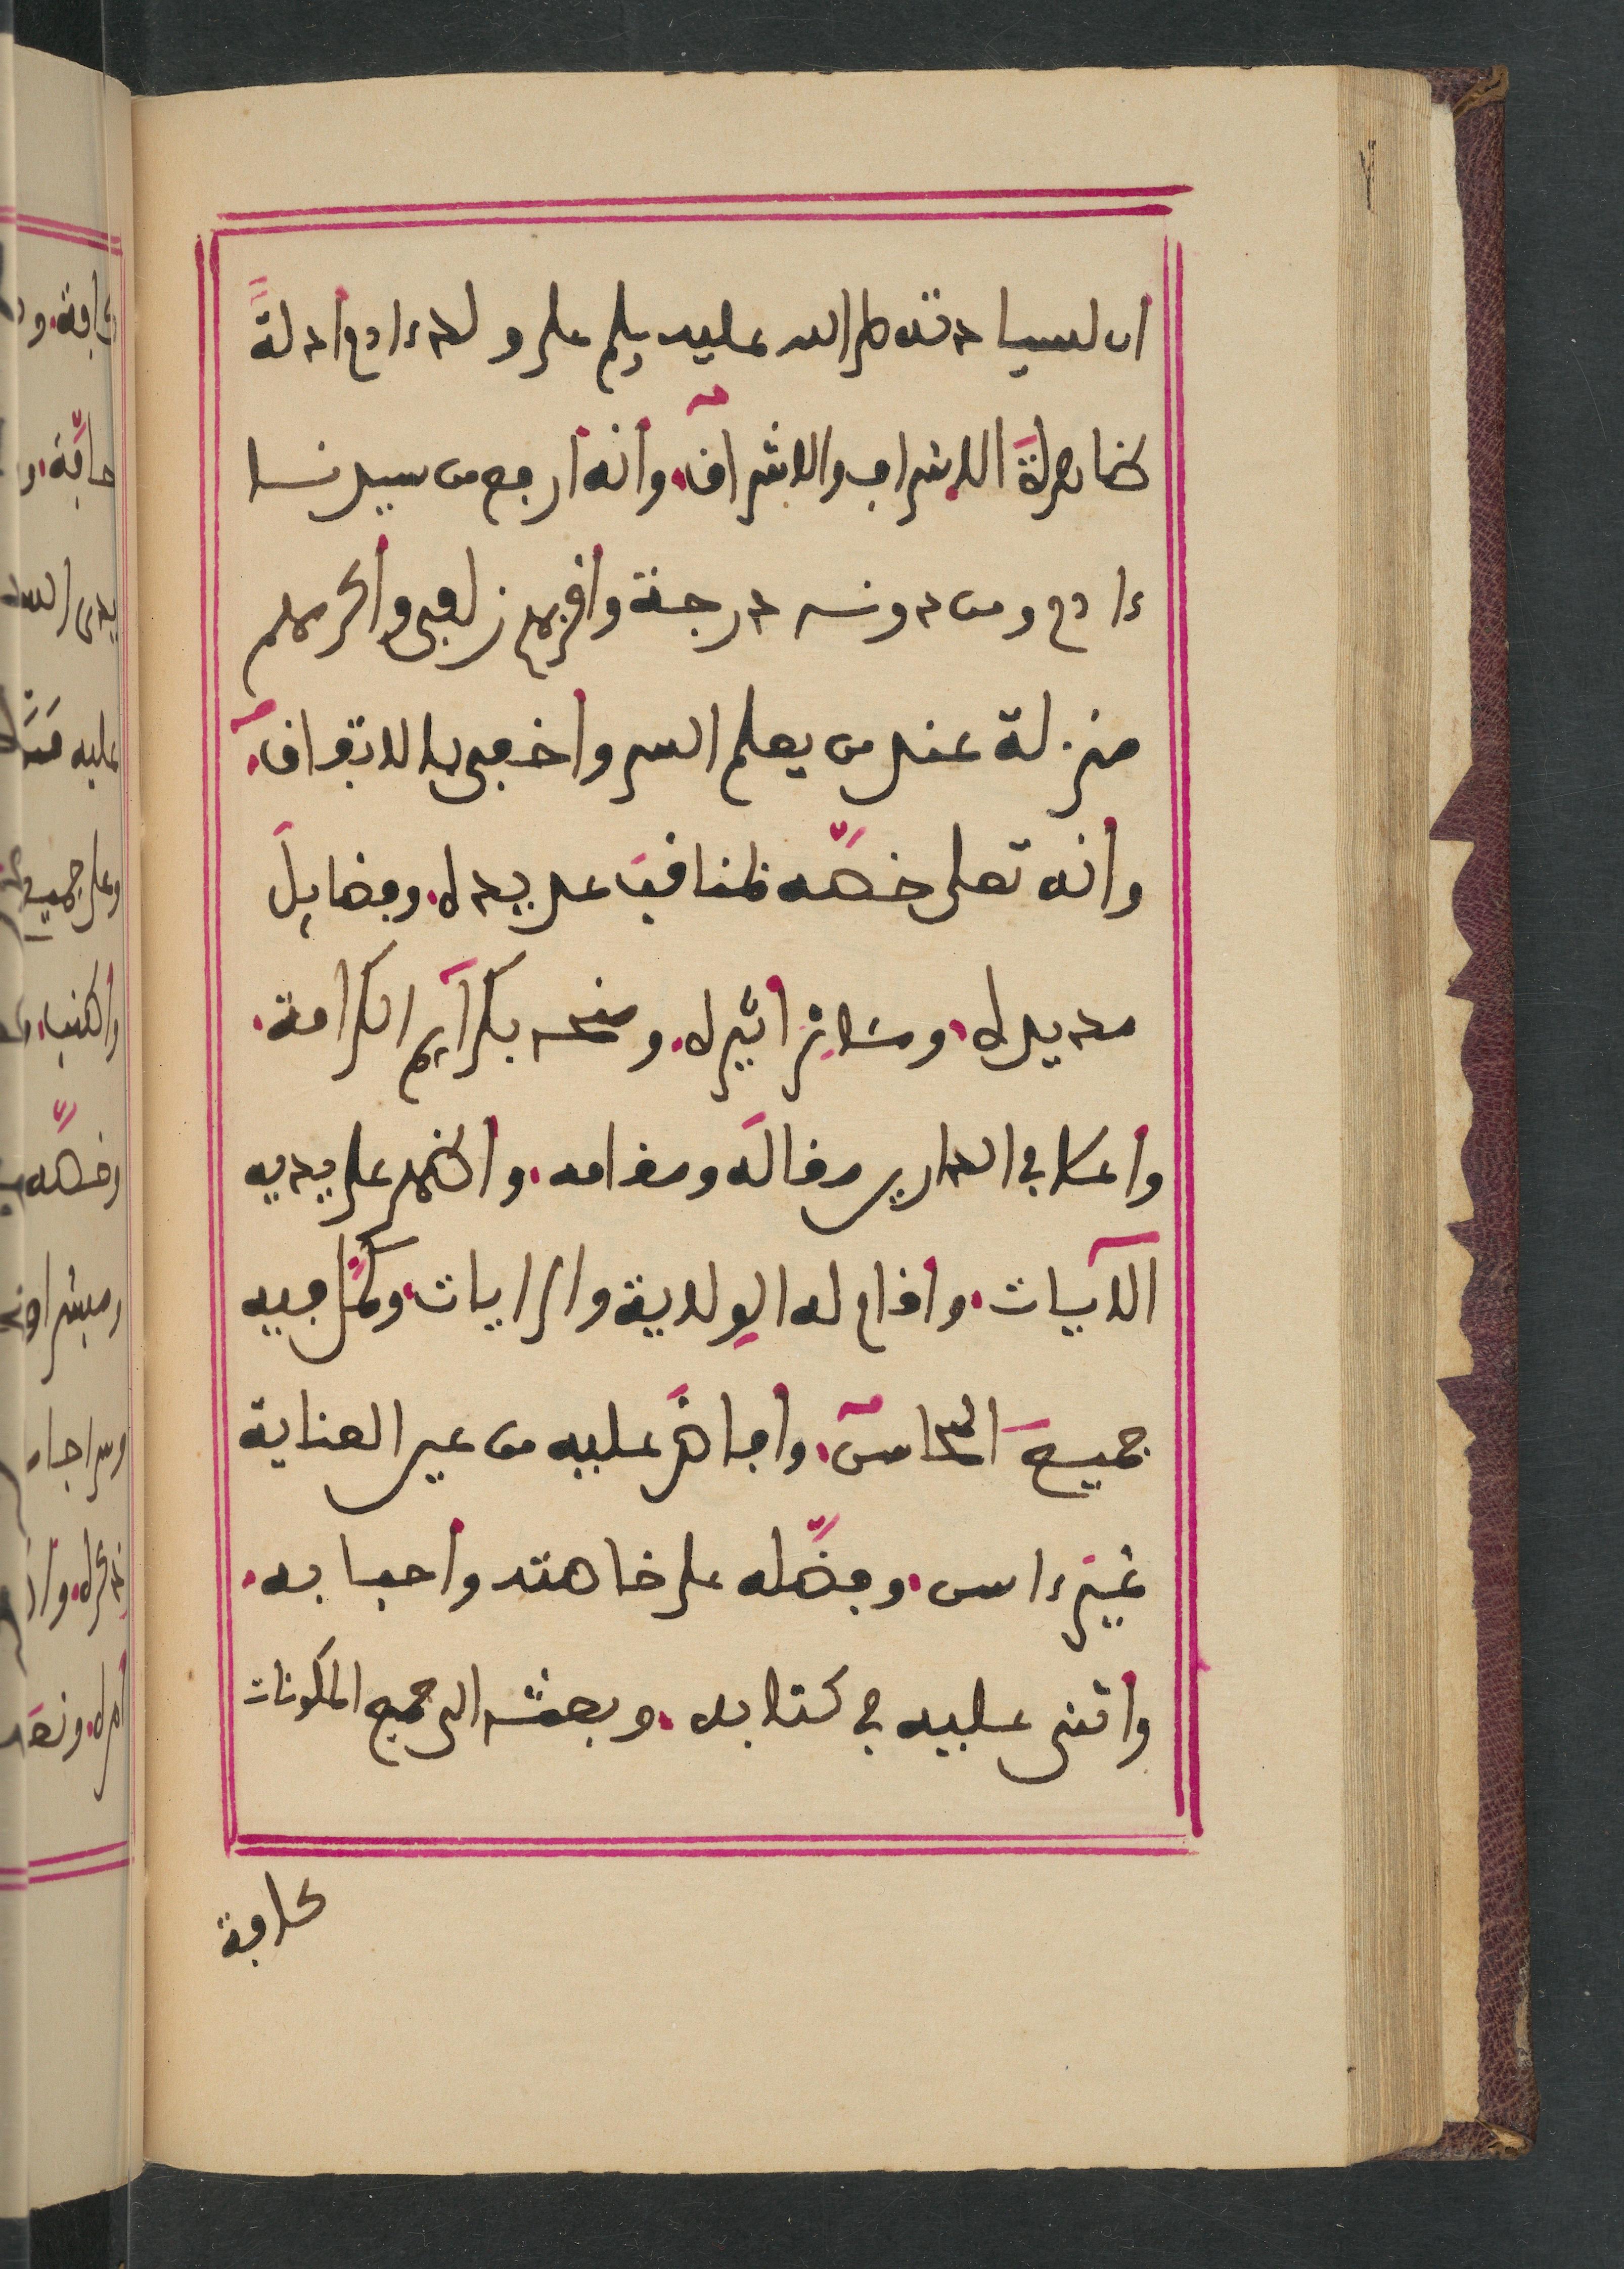 ان لسيادته صلى الله عليه وسلم على ولد ءادم ادلةً
ظاهرةَ الاشراف والاشراق، وانه ارفع من سيدنا
ءادم ومن دونه درجة واقربهم زلفى واكرمهم
منزلة عند من يعلم السر واخفى بالاتفاق،
وانه تعلى خصّه بمناقبَ عديدة، وفضايلَ
مديدة، ومئاثر اثيرة، ومنحه بكرآيم الكرامة،
واعلا في الدارين مقالَه ومقامه، واظهر على يديه
الآيات، واقام له الولاية والرايات، وكمّل فيه
جميعَ المحاسن، وافاضَ عليه من عين العناية
غيرَ ءاسن، وفضّله على خاصته واحبابه،
واثنى عليه في كتابه، وبعثه الى جميع المكونات
كافة